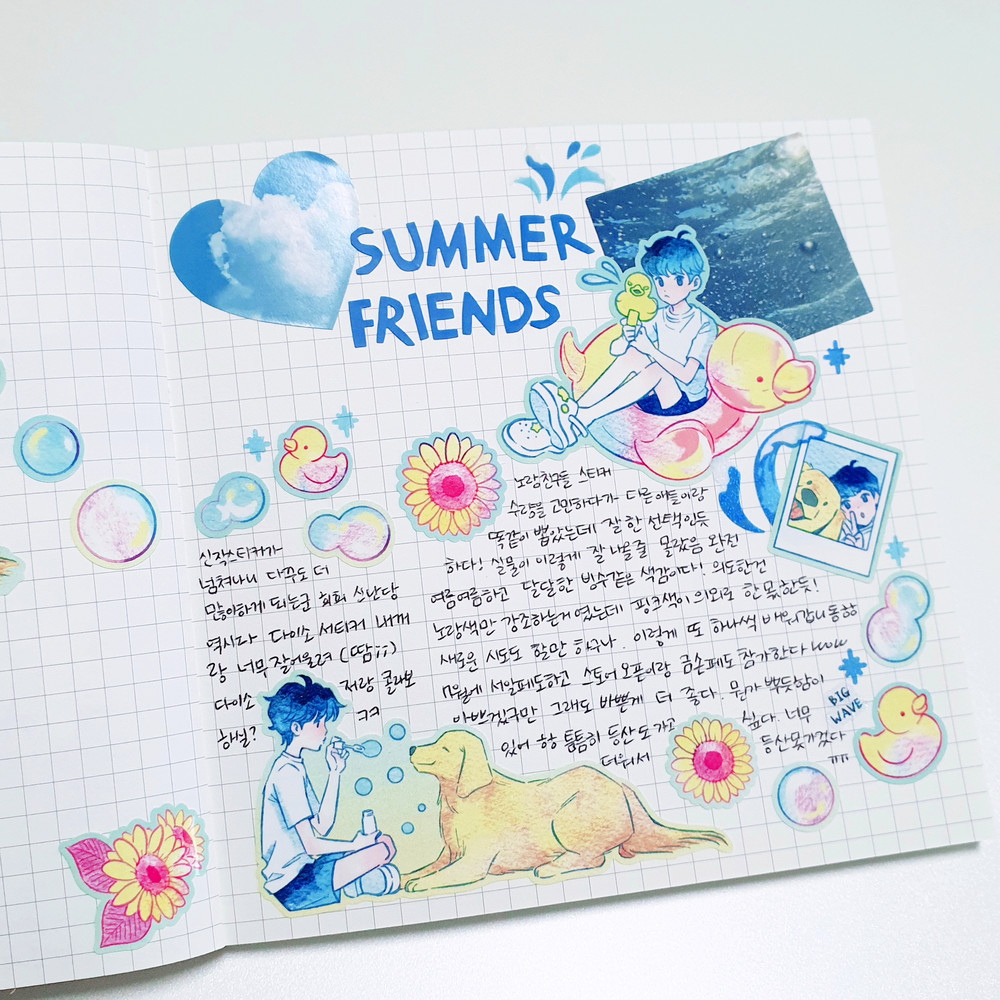 SUMMER
FRIENDS
신작스티커가
넘쳐나니 다꾸도 더
많이하게 되는군 희희 쓰난당
역시나 다이소 서티커 내꺼
랑 너무 잘어울려 (땀;;)
다이소 저랑 콜라보
하실? ㅋㅋ
노랑친구들 스티커
수량을 고민하다가 다른애들이랑
똑같이 뽑았는데 잘 한 선택인듯
하다! 실물이 이렇게 잘 나올줄 몰랐음 완전
여름여름하고 달달한 빙수같은 색감이다! 의도한건
노랑색만 강조하는거 였는데 핑크색이 의외로 한몫한듯!
새로운 시도도 할만 하구나. 이렇게 또 하나씩 배워갑니동항
서일페도하고 스토어 오픈이랑 금손페도 참가한다 wow
바쁘겠구만 그래도 바쁜게 더 좋다. 뭔가 뿌듯함이
있어 항 틈틈히 등산도 가고 싶다. 너무
더워서 등산못가겠다
ㅠㅠ
BIG
WAVE